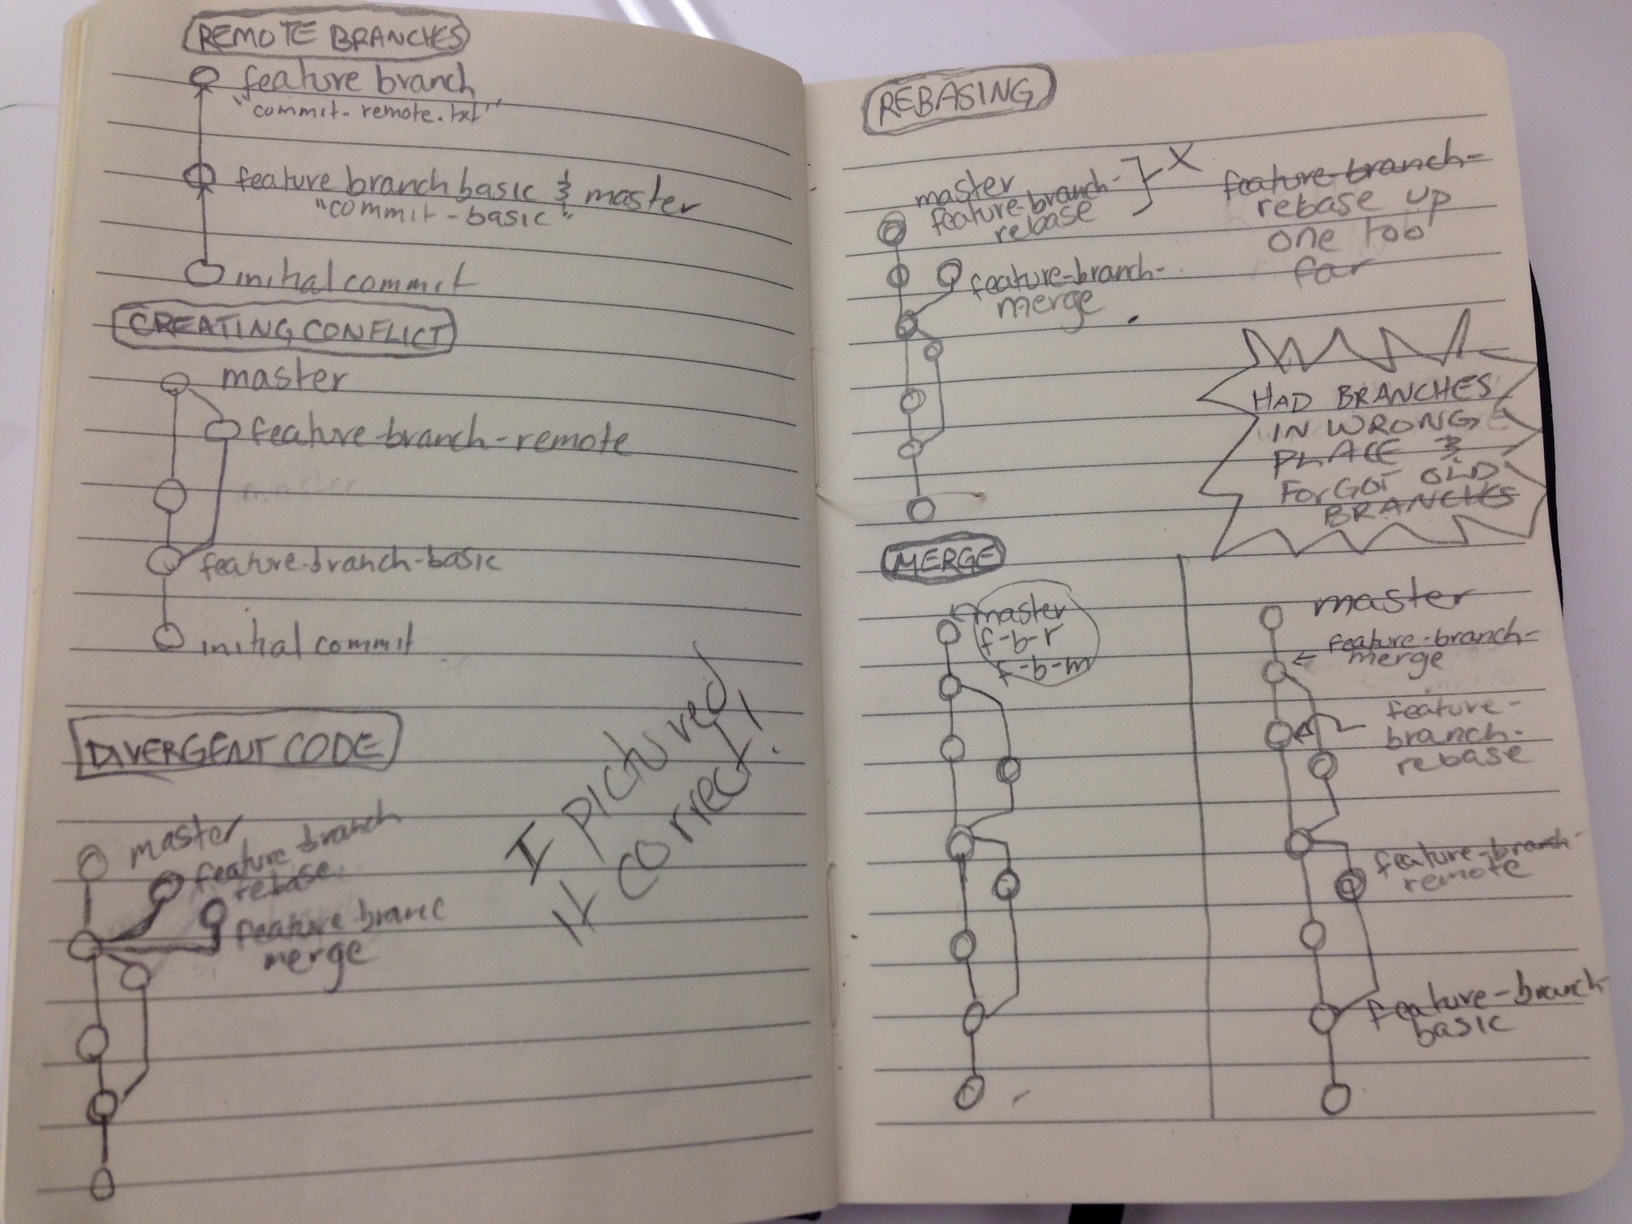 REMOTE BRANCHES
feature branch
"commit-remote.txt"
feature branch basic & master
"commit-basic"
initial commit
CREATING CONFLICT
master
feature-branch-remote
feature-branch-basic
initial commit
DIVERGENT CODE
master
feature branch
rebase
feature-branc
merge
I pictured
it correct!
REBASING
master
feature-branch-
rebase
} X
feature-branch-
rebase up
one too
far
feature-branch-
merge
HAD BRANCHES
IN WRONG
PLACE &
FORGOT OLD
BRANCHES
MERGE
master
f-b-r
f-b-m
master
feature-branch-
merge
feature-
branch-
rebase
feature-branch-
remote
feature-branch-
basic